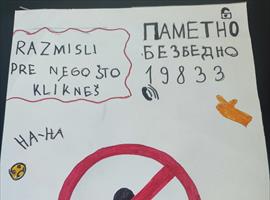 RAZMISLI
PRE NEGO ŠTO
KLIKNEŠ
ПАМЕТНО
БЕЗБЕДНО
19833
HA-HA